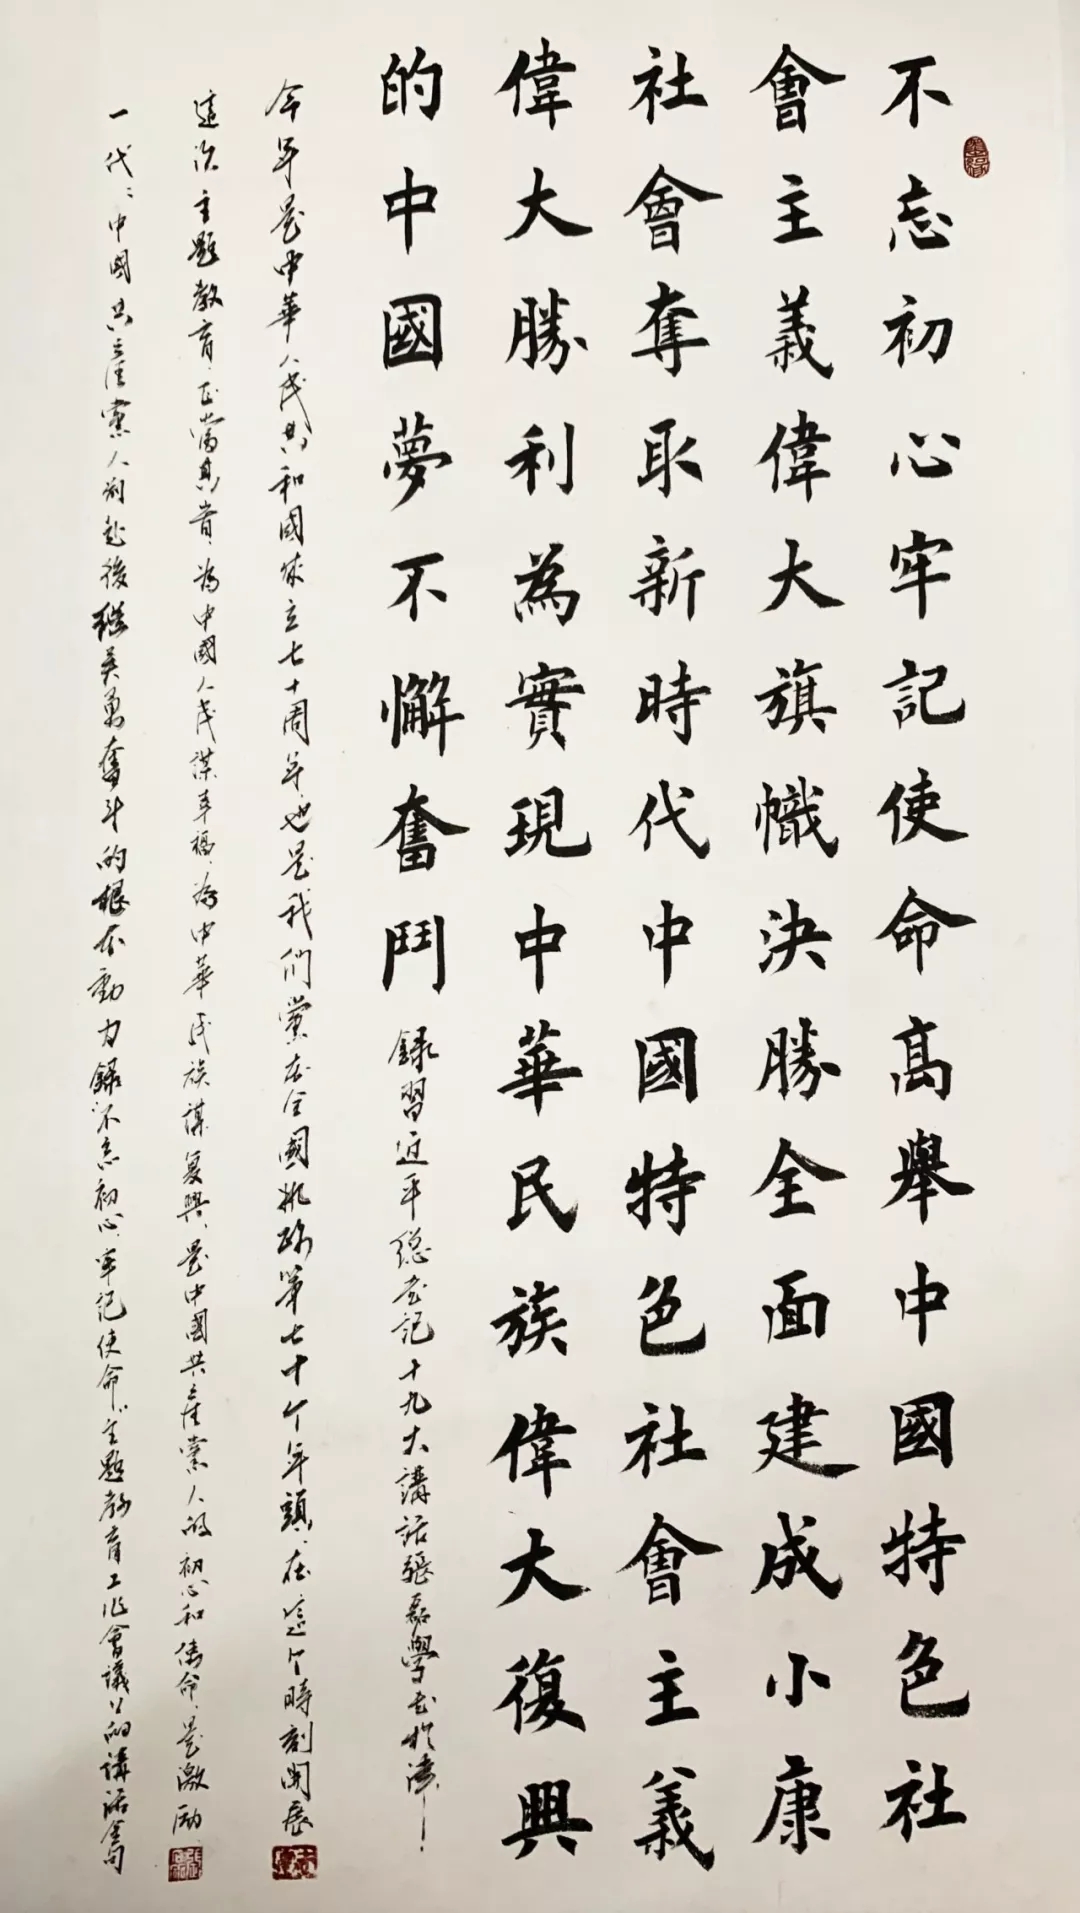 不忘初心牢記使命高舉中國特色社
會主義偉大旗幟決勝全面建成小康
社會奪取新時代中國特色社會主義
偉大勝利為實現中華民族偉大復興
的中國夢不懈奮鬥
錄習近平總書記十九大講話張磊學書於津
今年是中華人民共和國成立七十周年、也是我们黨在全國执政第七十个年頭、在這个時刻開展
這次主題教育、正當其時、為中國人民謀幸福、為中華民族謀复興、是中國共產黨人的初心和使命、是激励
一代代中國共產黨人前赴後继英勇奮斗的根本動力錄"不忘初心、牢記使命"主題教育工作會議上的講話